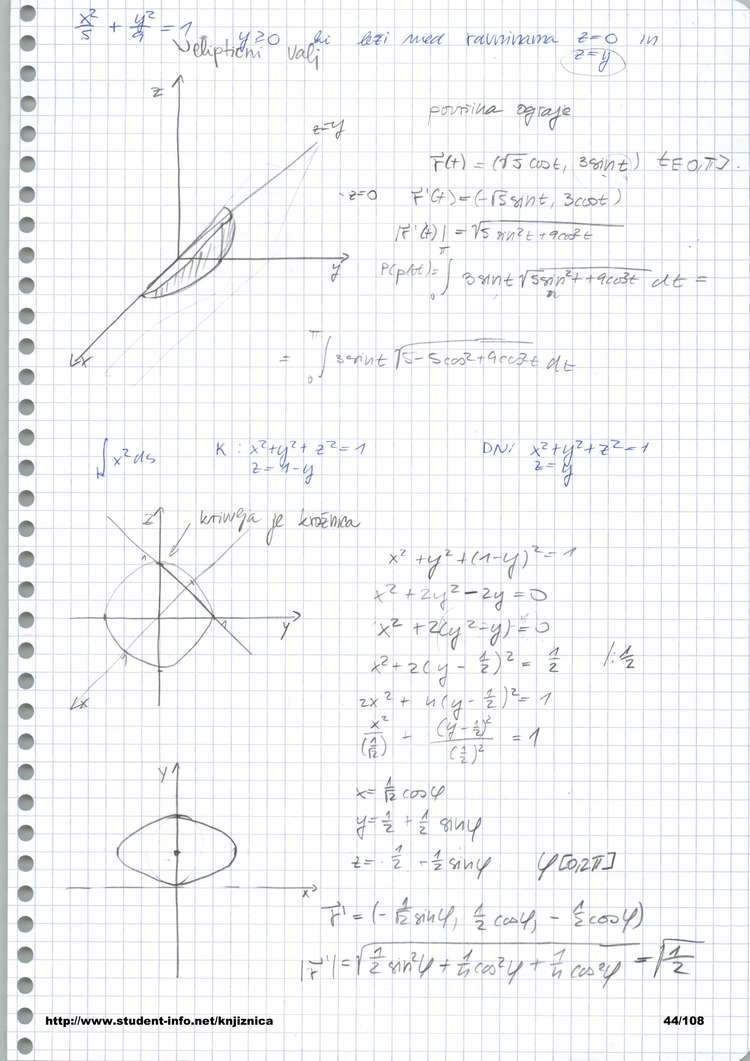 x²/5 + y²/9 = 1 y≥0 ki leži med ravninama z=0 in
eliptični valj z=y
z
z=y
površina ograje
r⃗(t) = (√5 cost, 3sint) t∈0,π>.
z=0 r⃗'(t) = (-√5 sint, 3cost)
|r⃗'(t)| = √5 sin²t+9cos²t
y
P(plot) = ∫₀^π 3sint √5sin²t+9cos²t dt =
x
= ∫₀^π 3sint √5-5cos²+9cos²t dt
∫ₖ x² ds K: x²+y²+z²=1 DN: x²+y²+z²=1
z=1-y z=y
z krivulja je krožnica
1
y
1
x
x²+y²+(1-y)²=1
x²+2y²-2y=0
x²+2(y²-y)=0
x²+2(y-1/2)²=1/2 /:1/2
2x²+4(y-1/2)²=1
x²/(1/√2) - (y-1/2)²/(1/2)² = 1
y
x
x=1/√2 cosφ
y=1/2+1/2 sinφ
z=1/2-1/2 sinφ φ[0,2π]
r⃗' = (-1/√2 sinφ, 1/2 cosφ, -1/2 cosφ)
|r⃗'| = √1/2 sin²φ+1/4 cos²φ+1/4 cos²φ = √1/2
http://www.student-info.net/knjiznica 44/108